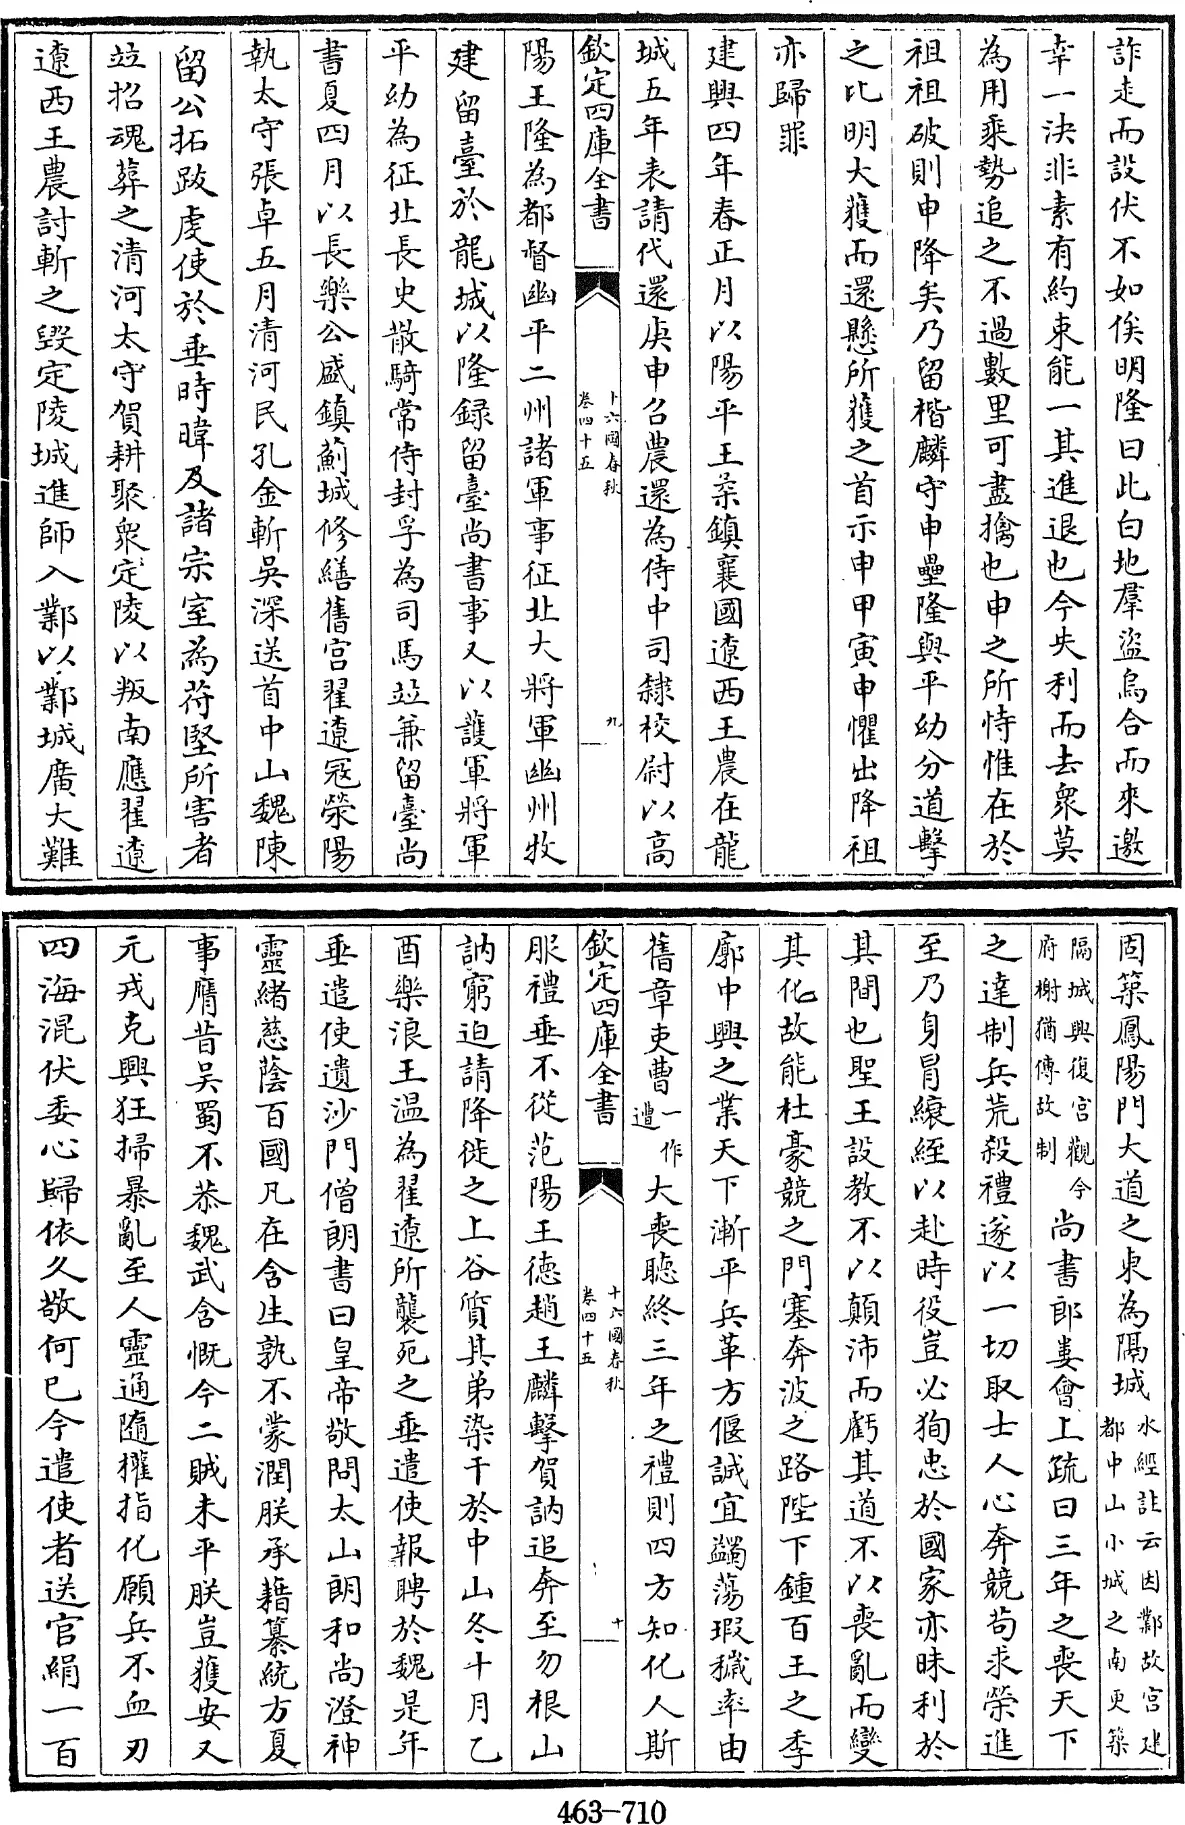 詐走而設伏不如俟明隆曰此白地羣盜烏合而來邀
幸一決非素有約束能一其進退也今失利而去衆莫
為用乘勢追之不過數里可盡擒也申之所恃惟在於
祖祖破則申降矣乃留楷麟守申壘隆與平幼分道擊
之比明大獲而還懸所獲之首示申甲寅申懼出降祖
亦歸罪
建興四年春正月以陽平王柔鎮襄國遼西王農在龍
城五年表請代還庚申召農還為侍中司隸校尉以高
欽定四庫全書
十六國春秋
卷四十五
九
陽王隆為都督幽平二州諸軍事征北大將軍幽州牧
建留臺於龍城以隆録留臺尚書事又以護軍將軍
平幼為征北長史散騎常侍封孚為司馬竝兼留臺尚
書夏四月以長樂公盛鎮薊城修繕舊宫翟遼宼滎陽
執太守張卓五月清河民孔金斬吳深送首中山魏陳
留公拓跋虔使於垂時暐及諸宗室為苻堅所害者
竝招魂葬之清河太守賀耕聚衆定陵以叛南應翟遼
遼西王農討斬之毀定陵城進師入鄴以鄴城廣大難
固築鳳陽門大道之東為隔城
水經註云因鄴故宮建
都中山小城之南更築
隔城興復宮觀今
府榭猶傳故制
尚書郎婁會上疏曰三年之喪天下
之達制兵荒殺禮遂以一切取士人心奔競苟求榮進
至乃身冒縗絰以赴時役豈必狥忠於國家亦昧利於
其間也聖王設教不以顛沛而虧其道不以喪亂而變
其化故能杜豪競之門塞奔波之路陛下鍾百王之季
廓中興之業天下漸平兵革方偃誠宜蠲蕩瑕穢率由
舊章吏曹
一作
遭
大喪聽終三年之禮則四方知化人斯
欽定四庫全書
十六國春秋
卷四十五
十
服禮垂不從范陽王德趙王麟擊賀訥追奔至勿根山
訥窮迫請降徙之上谷質其弟染干於中山冬十月乙
酉樂浪王温為翟遼所襲死之垂遣使報聘於魏是年
垂遣使遺沙門僧朗書曰皇帝敬問太山朗和尚澄神
靈緒慈蔭百國凡在含生孰不蒙潤朕承藉纂統方夏
事膺昔吴蜀不恭魏武含慨今二賊未平朕豈獲安又
元戎克興狂掃暴亂至人靈通隨權指化願兵不血刃
四海混伏委心歸依久敬何已今遣使者送官絹一百
463-710